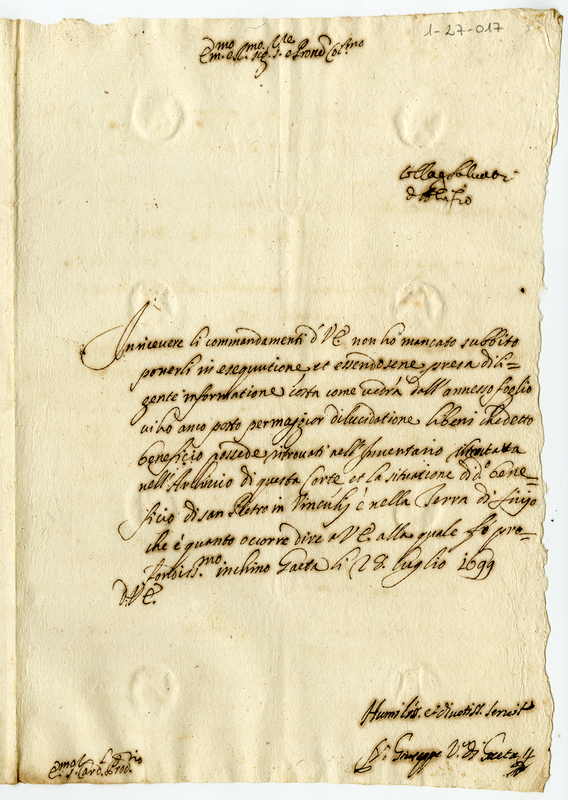 1-27-017
Em.mo e R.mo Sig.re e Prone Col.mo
In ricevere li commandamenti d'V.E. non ho mancato subbito
ponerli in esequutione et essendosene presa dili=
gente informatione costa come vedrà dall'annesso foglio
vi ho anco posto per maggior dilucidatione li beni che detto
beneficio possede ritrovati nell'Inventario
nell'Archivio di questa Corte et la situatione di d.o bene=
ficio di san Pietro in Vinculis è nella Terra di
che è quanto occorre dire a V.E. alla quale fò pro=
fondiss.mo inchino Gaeta li 28 luglio 1699
D. V.E.
Humiliss. et divotiss. servit.
Giuseppe V.o di Gaeta
Card.